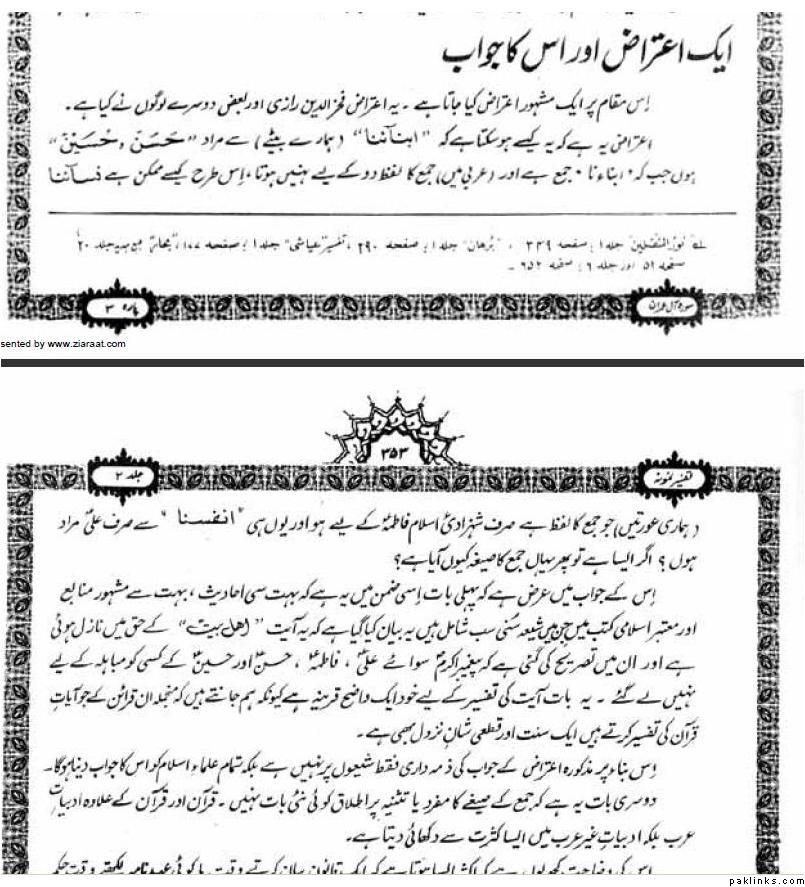 ایک اعتراض اور اس کا جواب
اِس مقام پر ایک مشہور اعتراض کیا جاتا ہے ۔ یہ اعتراض فخر الدین رازی اور بعض دوسرے لوگوں نے کیا ہے ۔
اعتراض یہ ہے کہ یہ کیسے ہو سکتا ہے کہ "ابنائنا" (ہمارے بیٹے) سے مراد "حَسَنؑ و حُسَیْنؑ"
ہوں جب کہ "ابناء نا" جمع ہے اور (عربی میں) جمع کا لفظ دو کے لیے نہیں ہوتا، اِس طرح کیسے ممکن ہے نسائنا
لہ نور الثقلین جلد ۱، صفحہ ۳۴۹ ، "برھان" جلد ۱، صفحہ ۲۹۰ ، تفسیر عیاشی" جلد ۱، صفحہ ۱۷۷، بحار جلد ۲۰
صفحہ ۵۲ اور جلد ۶، صفحہ ۶۵۲ ۔
پارہ ۳
سورہ آل عمران
sented by www.ziaraat.com
۳۵۳
جلد ۲
تفسیر نمونہ
(ہماری عورتیں) جو جمع کا لفظ ہے صرف شہزادیٔ اسلام فاطمہؑ کے لیے ہو اور یوں ہی "انفسنا" سے صرف علیؑ مراد
ہوں ؟ اگر ایسا ہے تو پھر یہاں جمع کا صیغہ کیوں آیا ہے ؟
اِس کے جواب میں عرض ہے کہ پہلی بات اِسی ضمن میں یہ ہے کہ بہت سی احادیث ، بہت سے مشہور منابع
اور معتبر اسلامی کتب میں جن میں شیعہ سُنی سب شامل ہیں یہ بیان کیا گیا ہے کہ یہ آیت "اھل بیت" کے حق میں نازل ہوئی
ہے اور ان میں تصریح کی گئی ہے کہ پیغمبر اکرمؐ سوائے علیؑ ، فاطمہؑ ، حسنؑ اور حسینؑ کے کسی کو مباہلہ کے لیے
نہیں لے گئے ۔ یہ بات آیت کی تفسیر کے لیے خود ایک واضح قرینہ ہے کیونکہ ہم جانتے ہیں کہ منجملہ ان قرائن کے جو آیاتِ
قرآن کی تفسیر کرتے ہیں ایک سنت اور قطعی شانِ نزول بھی ہے ۔
اِس بناء پر مذکورہ اعتراض کے جواب کی ذمہ داری فقط شیعوں پر نہیں ہے بلکہ تمام علماء اسلام کو اس کا جواب دینا ہوگا۔
دوسری بات یہ ہے کہ جمع کے صیغے کا مفرد یا تثنیہ پر اطلاق کوئی نئی بات نہیں ۔ قرآن اور قرآن کے علاوہ ادبیاتِ
عرب بلکہ ادبیاتِ غیر عرب میں ایسا کثرت سے دکھائی دیتا ہے ۔
paklinks.com